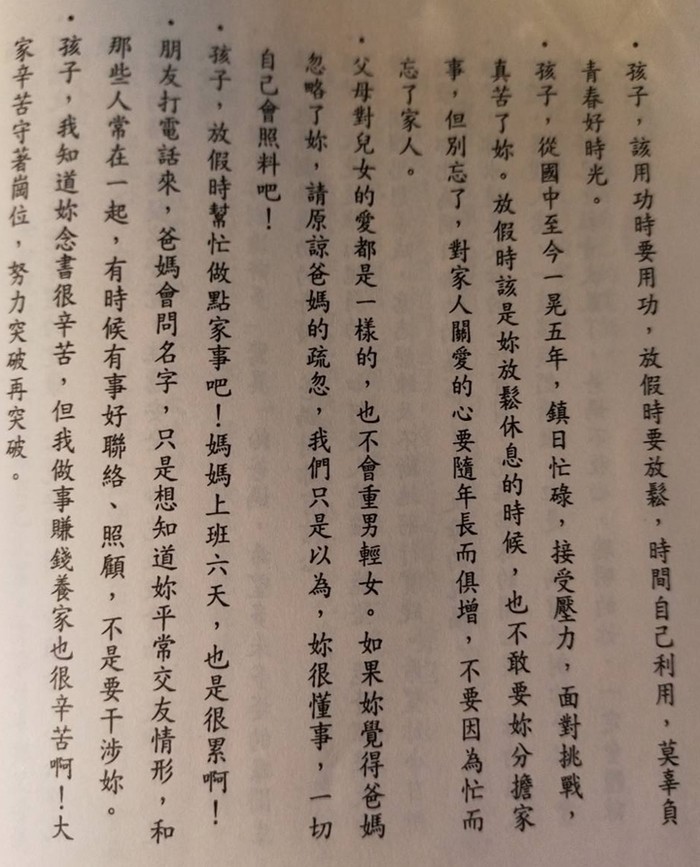 •孩子，該用功時要用功，放假時要放鬆，時間自己利用，莫辜負
青春好時光。
•孩子，從國中至今一晃五年，鎮日忙碌，接受壓力，面對挑戰，
真苦了妳。放假時該是妳放鬆休息的時候，也不敢要妳分擔家
事，但別忘了，對家人關愛的心要隨年長而俱增，不要因為忙而
忘了家人。
•父母對兒女的愛都是一樣的，也不會重男輕女。如果妳覺得爸媽
忽略了妳，請原諒爸媽的疏忽，我們只是以為，妳很懂事，一切
自己會照料吧！
•孩子，放假時幫忙做點家事吧！媽媽上班六天，也是很累啊！
•朋友打電話來，爸媽會問名字，只是想知道妳平常交友情形，和
那些人常在一起，有時候有事好聯絡、照顧，不是要干涉妳。
•孩子，我知道妳念書很辛苦，但我做事賺錢養家也很辛苦啊！大
家辛苦守著崗位，努力突破再突破。